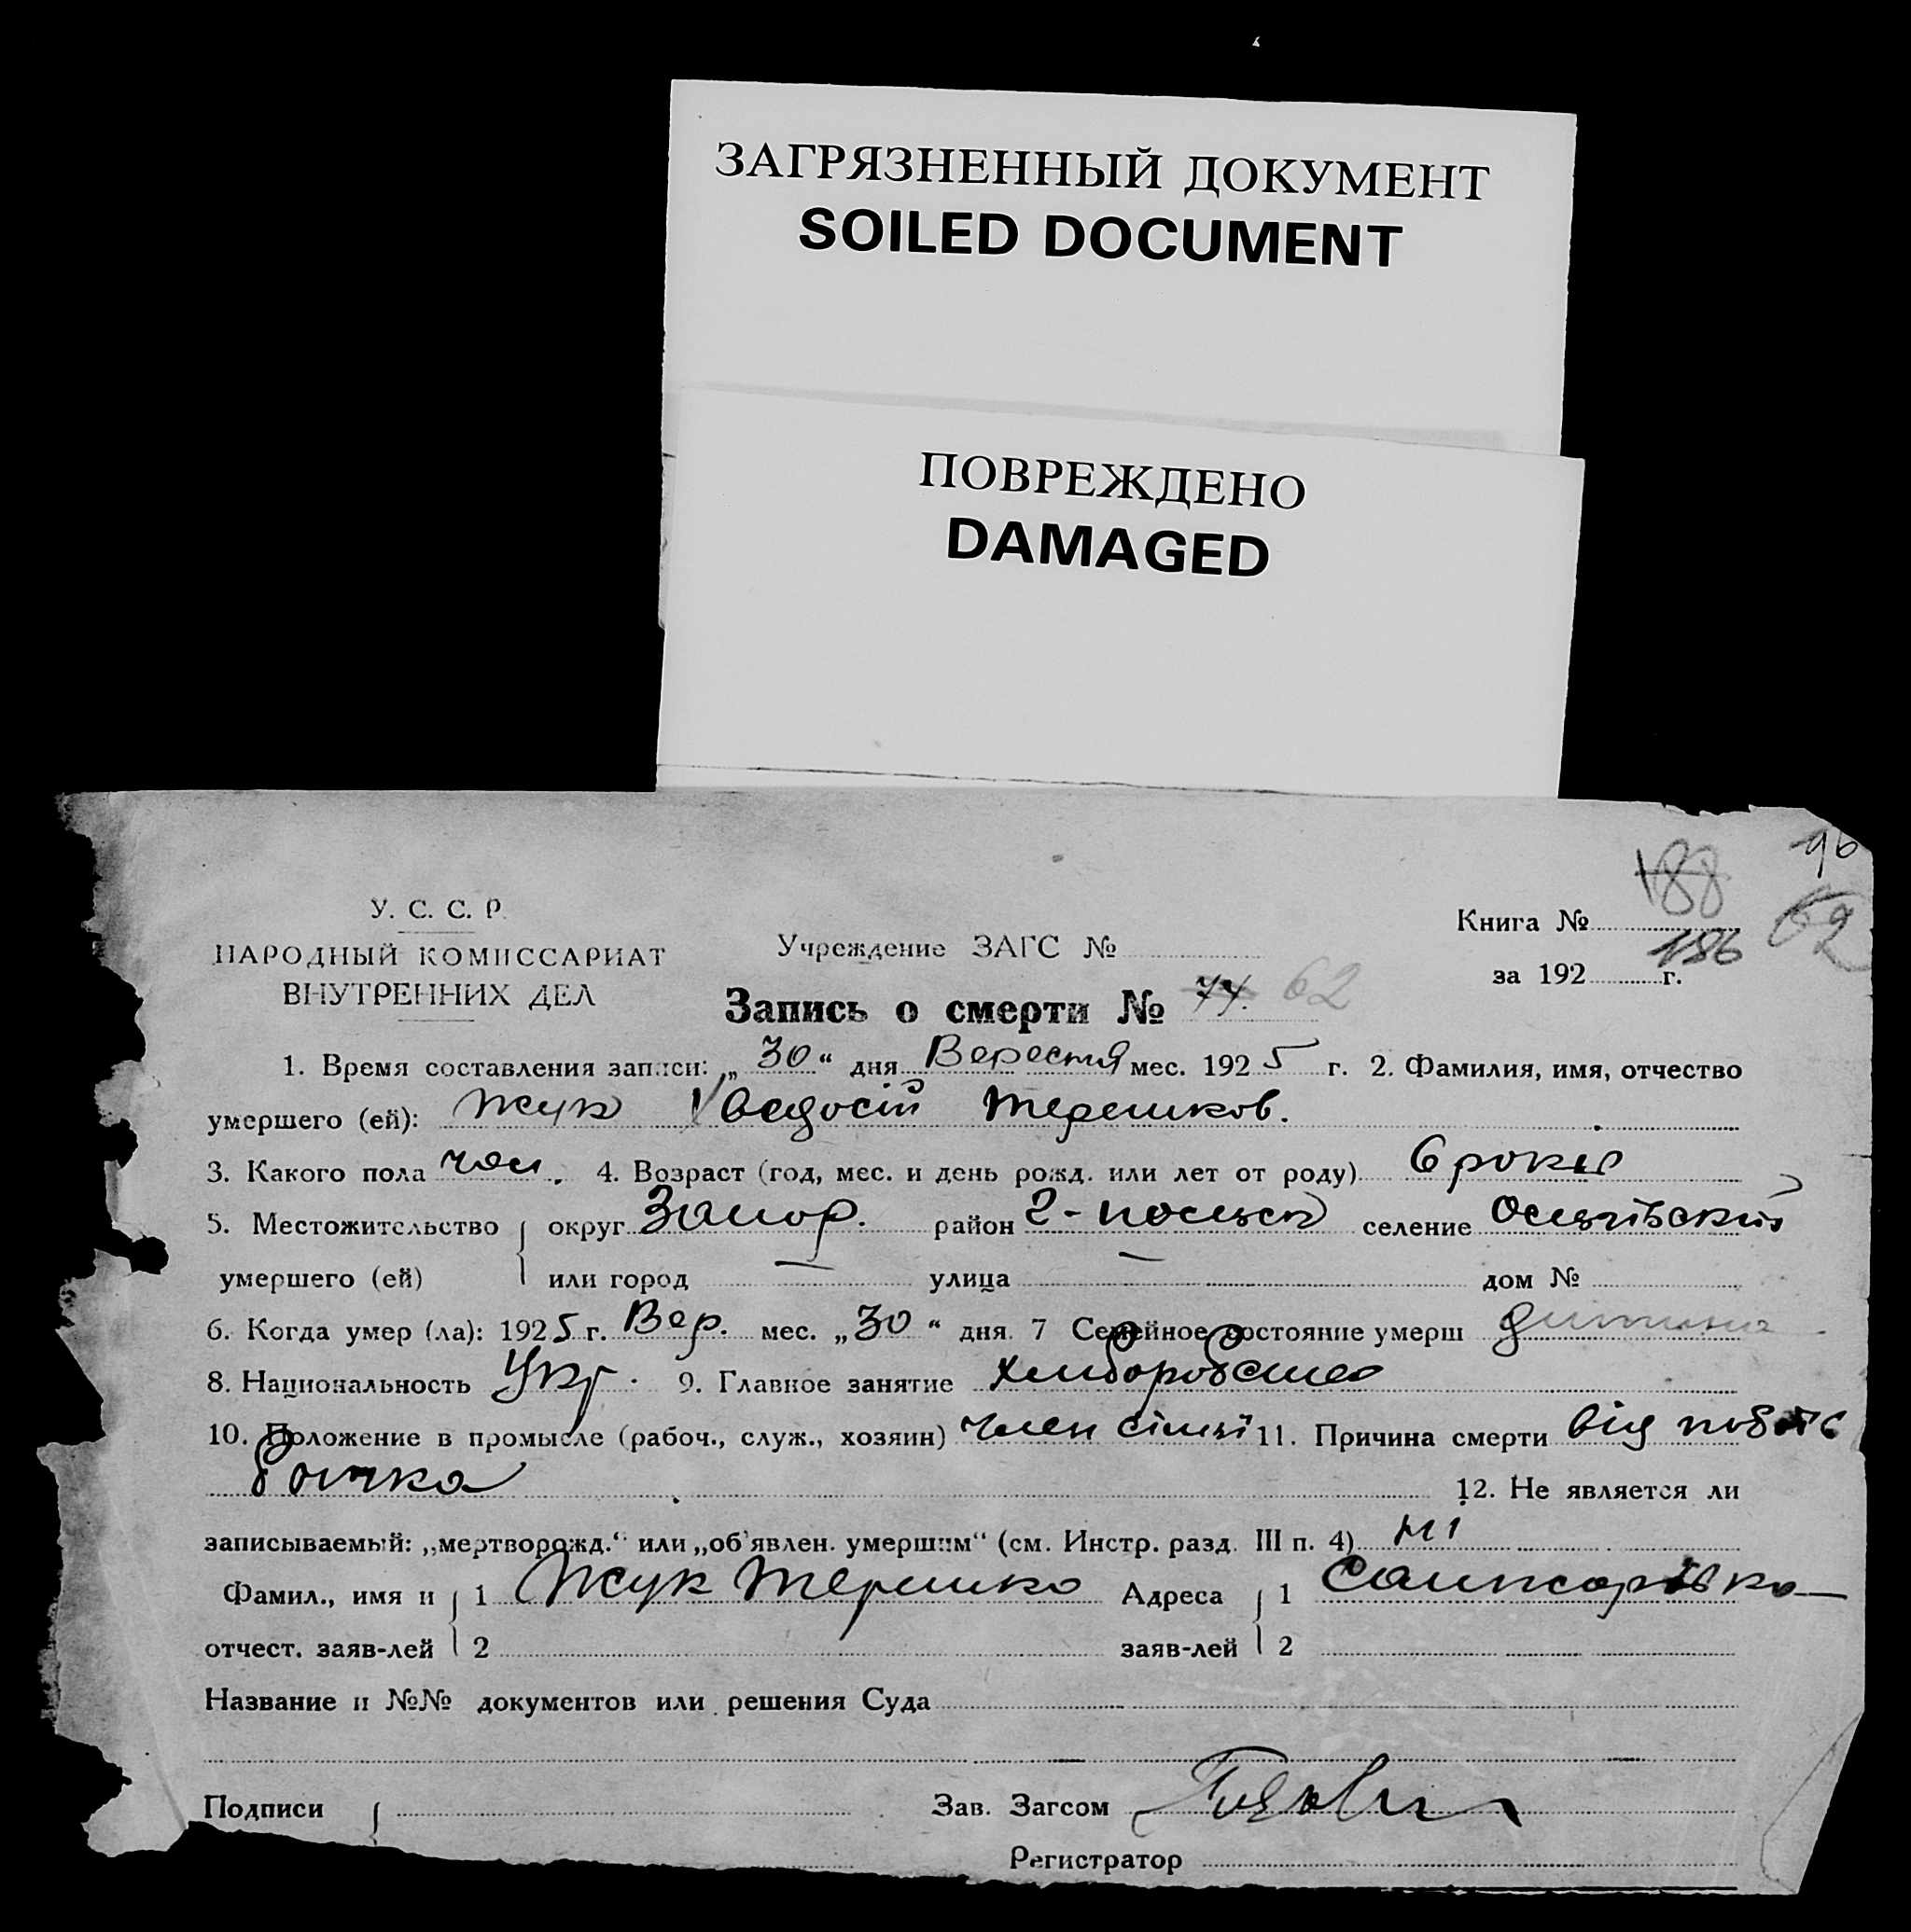 ЗАГРЯЗНЕННЫЙ ДОКУМЕНТ
SOILED DOCUMENT
ПОВРЕЖДЕНО
DAMAGED
96
188
У. С. С. Р.
Книга №
62
НАРОДНЫЙ КОМИССАРИАТ
Учреждение ЗАГС №
186
за 192 г.
ВНУТРЕННИХ ДЕЛ
Запись о смерти № 74. 62
1. Время составления записи: „30“ дня Вересня мес. 1925 г. 2. Фамилия, имя, отчество
умершего (ей): Жук Хведосій Терешков.
3. Какого пола чол. 4. Возраст (год, мес. и день рожд. или лет от роду) 6 років
5. Местожительство округ Запор. район 2- селение
умершего (ей) или город — улица — дом №
6. Когда умер (ла): 1925 г. Вер. мес. „30“ дня. 7 Семейное состояние умерш дитина
8. Национальность Укр. 9. Главное занятие хлиборобство
10. Положение в промысле (рабоч., служ., хозяин) член сімьї 11. Причина смерти від
12. Не является ли
записываемый: „мертворожд.“ или „об'явлен. умершим“ (см. Инстр. разд. III п. 4) ні
Фамил., имя и 1 Жук Терешко Адреса 1
отчест. заяв-лей 2 заяв-лей 2
Название и №№ документов или решения Суда
Подписи Зав. Загсом
Регистратор